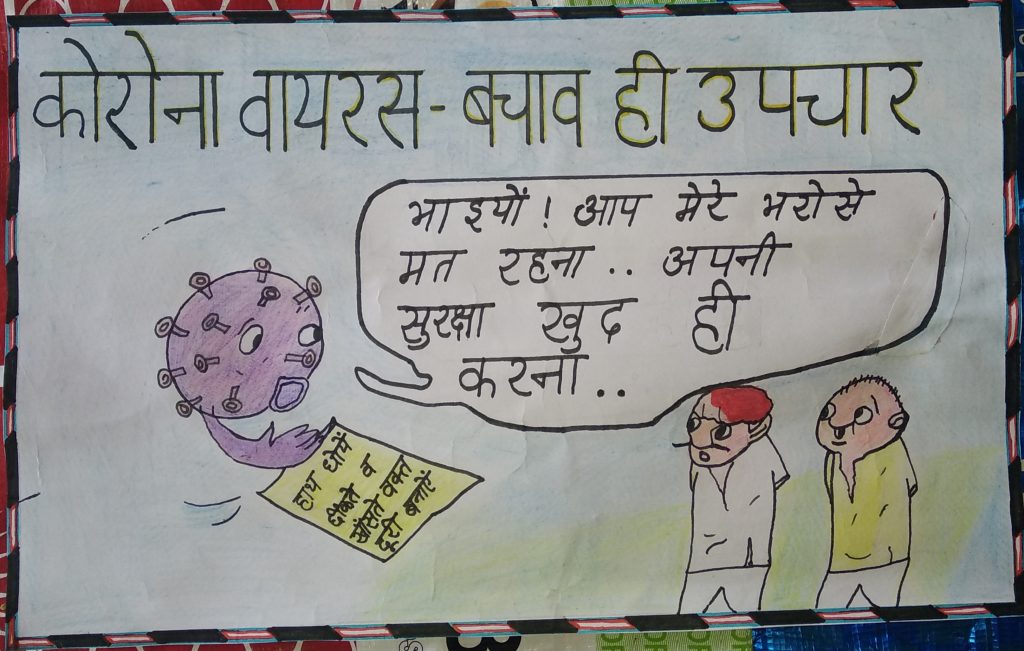 कोरोना वायरस - बचाव ही उपचार
भाइयों! आप मेरे भरोसे
मत रहना .. अपनी
सुरक्षा खुद ही
करना..
हाथ धोयें
छींकते व
खाँसते वक्त
दूरी बनाऐं